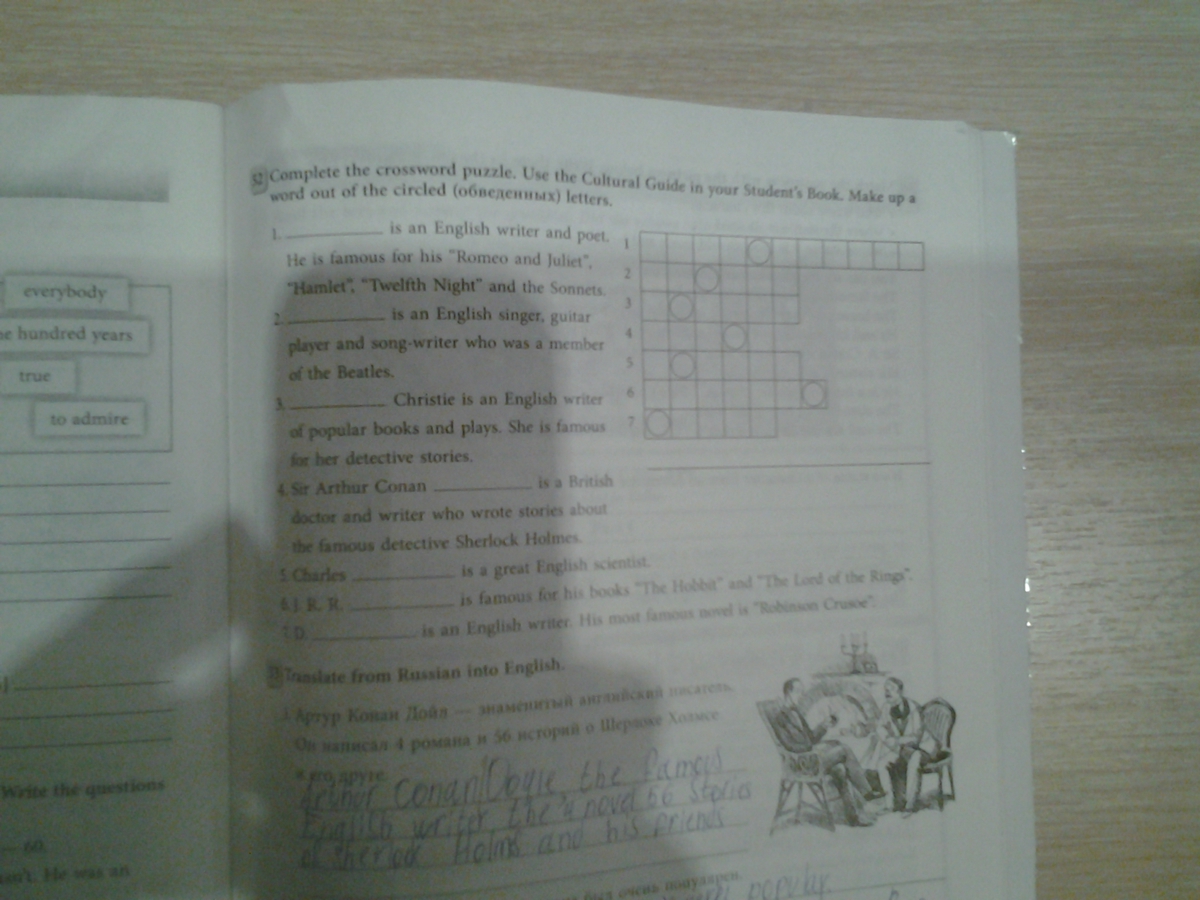 everybody
hundred years
true
to admire
Write the questions
60.
He was an
32 Complete the crossword puzzle. Use the Cultural Guide in your Student's Book. Make up a
word out of the circled (обведенных) letters.
1. __________ is an English writer and poet.
He is famous for his "Romeo and Juliet",
"Hamlet", "Twelfth Night" and the Sonnets.
2. __________ is an English singer, guitar
player and song-writer who was a member
of the Beatles.
3. __________ Christie is an English writer
of popular books and plays. She is famous
for her detective stories.
4. Sir Arthur Conan __________ is a British
doctor and writer who wrote stories about
the famous detective Sherlock Holmes.
5. Charles __________ is a great English scientist.
6. J. R. R. __________ is famous for his books "The Hobbit" and "The Lord of the Rings".
7. D. __________ is an English writer. His most famous novel is "Robinson Crusoe".
1
2
3
4
5
6
7
33 Translate from Russian into English.
1. Артур Конан Дойл — знаменитый английский писатель.
Он написал 4 романа и 56 историй о Шерлоке Холмсе
и его друге.
Arthur Conan Doyle the famous
English writer the 4 novel 56 Stories
of Sherlock Holms and his friends
был очень популярен.
popular.